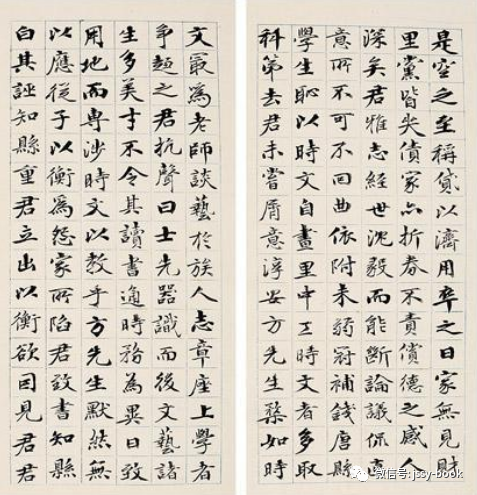 是空之至稱貸以濟用卒之日家無見財
里黨皆失債家亦折券不責償德之感人
深矣君雅志經世沈毅而能斷論議侃
意所不可不回曲依附未弱冠補錢唐縣
學生恥以時文自畫里中工時文者多取
科第去君未嘗屑意淳安方先生棻如時
文最為老師談藝於族人志章座上學者
爭趨之君抗聲曰士先器識而後文藝諸
生多美才不令其讀書通時務為異日致
用地而専涉時文以教乎方先生默然無
以應從子以衡為怨家所陷君致書知縣
白其誣知縣重君立出以衡欲因見君君
微信号: jssy-book